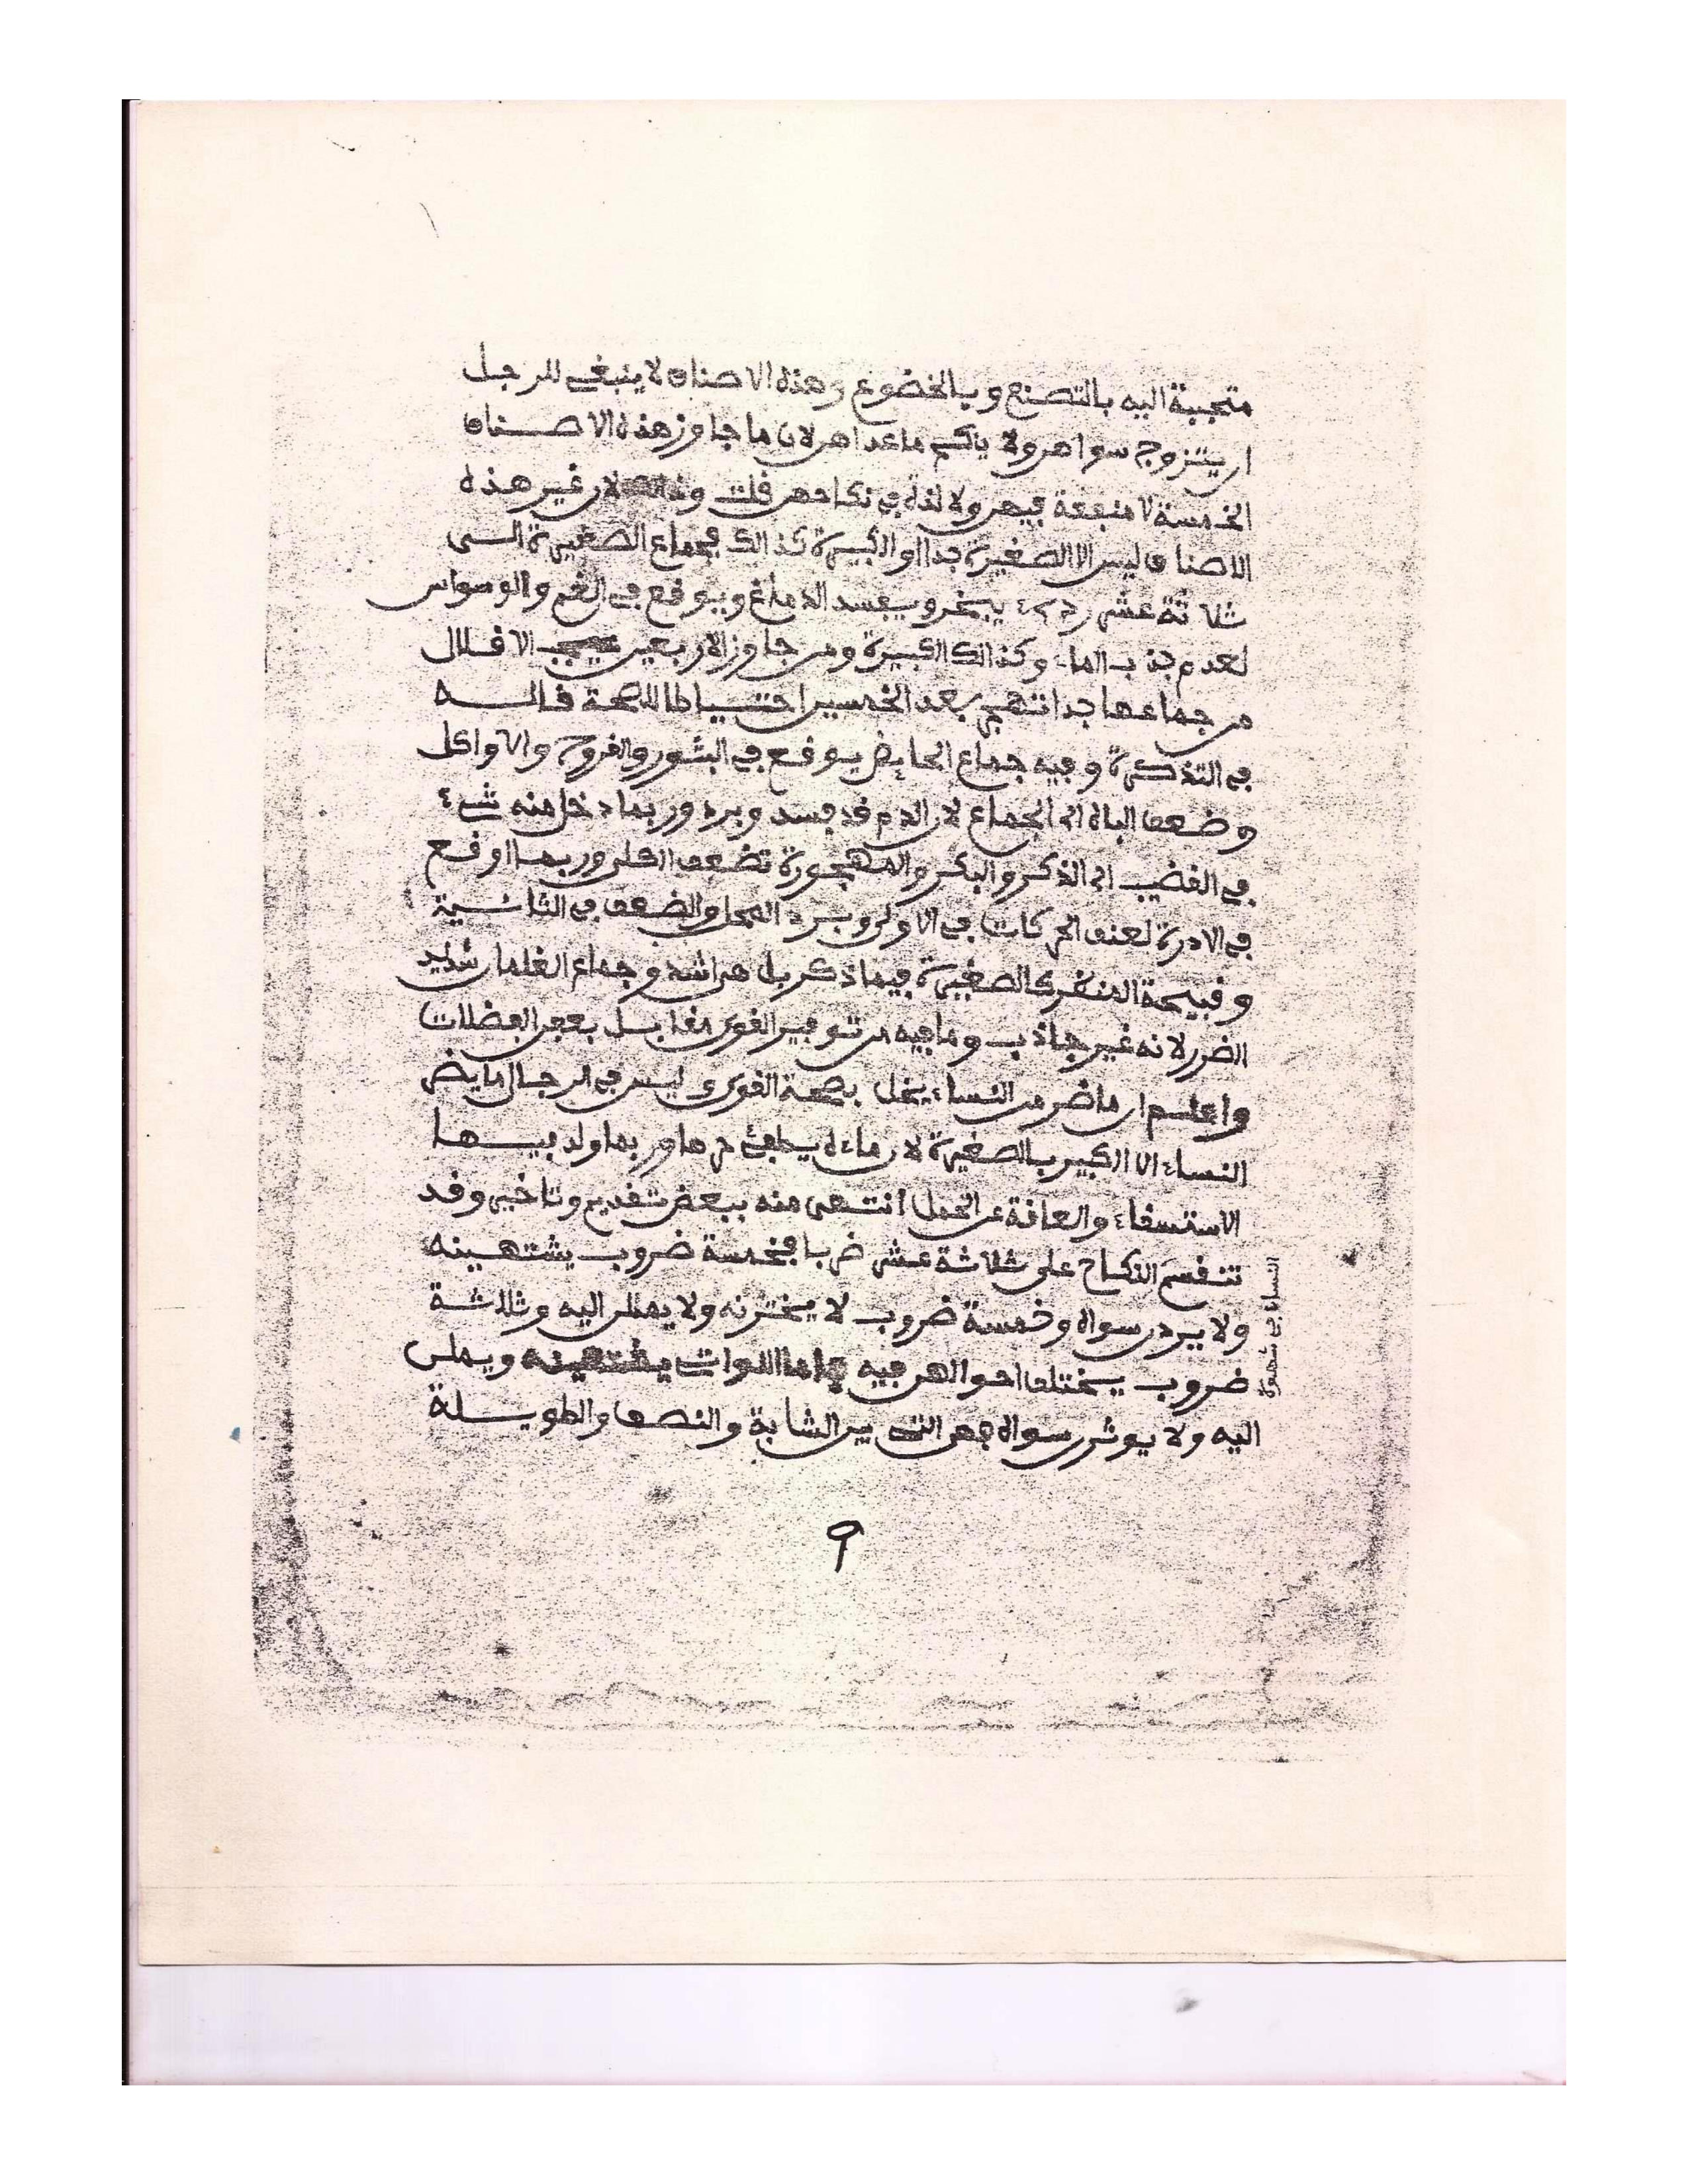 متحببة اليه بالتصنع وبالخضوع وهذه الاصناف لا ينبغي للرجل
ان يتزوج سواهن ولا ينكح ما عداهن لان ما جاوز هذه الاصناف
الخمسة لا منفعة فيهن ولا لذة في نكاحهن قلت وذالك لان غير هذه
الاصناف ليس الا الصغيرة جدا او الكبيرة كذالك فجماع الصغيرة السى
ثلاثة عشر يبخر ويفسد الدماغ ويوقع في الغم والوسواس
لعدم جذب الماء وكذالك الكبيرة ومن جاوز الاربعين يجب الاقلال
من جماعها جدا انتهى بعد الخمسين احتياطا للصحة قاله
في التذكرة وفيه جماع الحايض يوقع في البثور والقروح والاواكل
وضعف الباه الى الجماع لان الدم قد فسد وبرد وربما دخل منه شيء
في القضيب الى الذكر والبكر والمهجورة تضعف الكلى وربما اوقع
في الادرة لعنف الحركات في الاولى وبرد المحل والضعف في الثانية
وقبيحة المنظر كالصغيرة فيما ذكر بل هي اشد وجماع الغلمان شديد
الضرر لانه غير جاذب وما فيه من توفير القوى مقابل بعجن العضلات
واعلم ان ماضر من النساء يخل بصحة القوى وليس في الرجال ما يضر
النساء الا الكبير بالصغيرة لان ماءه يطفئ دمها وربما ولد فيها
الاستسقاء والعاقة عن الحمل انتهى منه ببعض تقديم وتاخير وقد
تنقسم النكاح على ثلاثة عشر ضربا فخمسة ضروب يشتهينه
ولا يردن سواه وخمسة ضروب لا يخترنه ولا يملن اليه وثلاثة
ضروب يختلف احوالهن فيه فاما اللواتي يشتهينه ويملن
اليه ولا يوثرن سواه فهن التي بين الشابة والنصف والطويلة
النساء في شهوة
٩